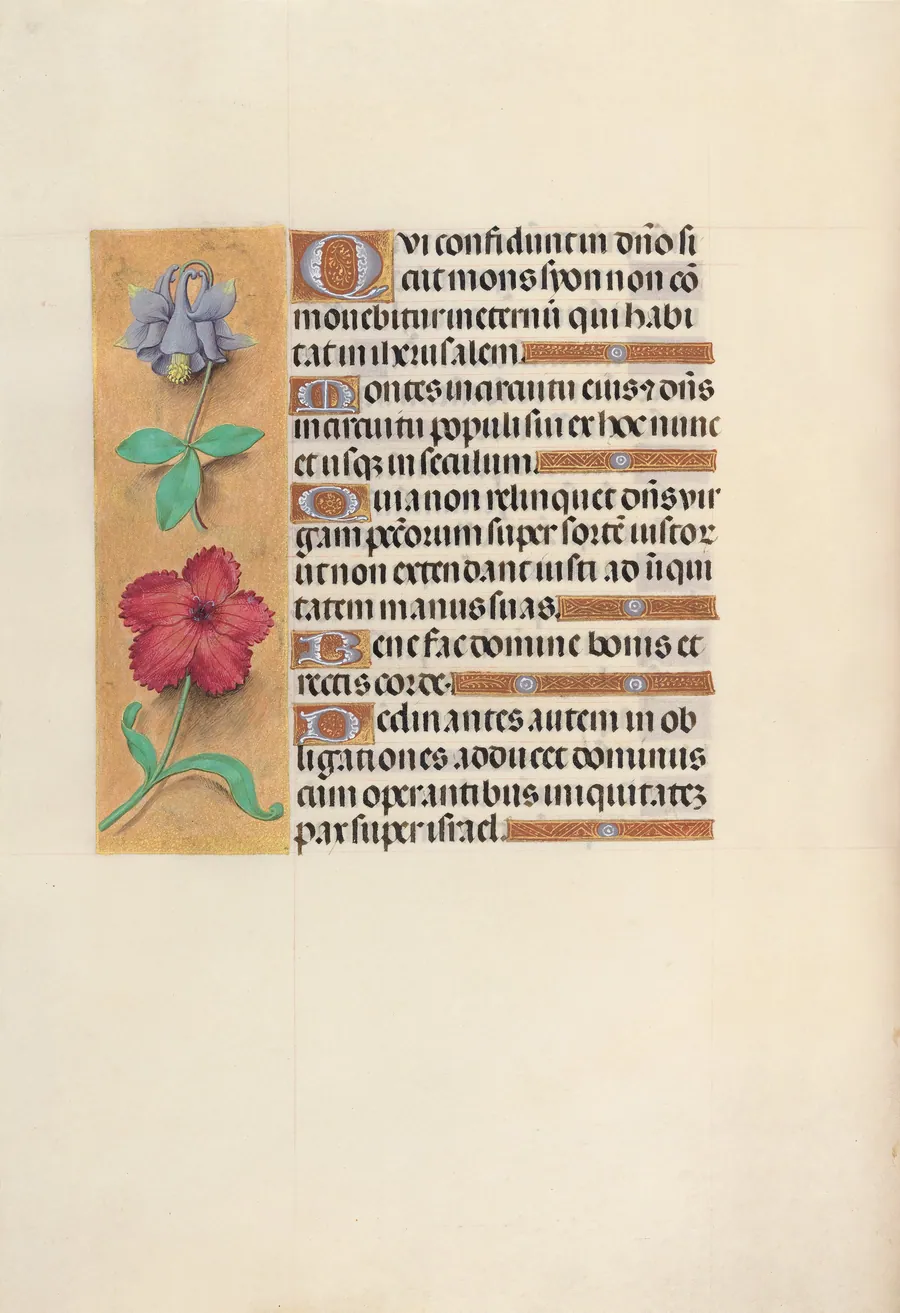 Qvi confidunt in dño si
cut mons syon non cō
mouebitur in eternū qui habi
tat in iherusalem.
Montes in circuitu eius ⁊ dñs
in circuitu populi sui ex hoc nunc
et usqꝫ in seculum.
Quia non relinquet dñs vir
gam pctōrum super sortē iustoꝝ
ut non extendant iusti ad iniqui
tatem manus suas.
Bene fac domine bonis et
rectis corde.
Declinantes autem in ob
ligationes adducet dominus
cum operantibus iniquitatēꝫ
pax super israel.